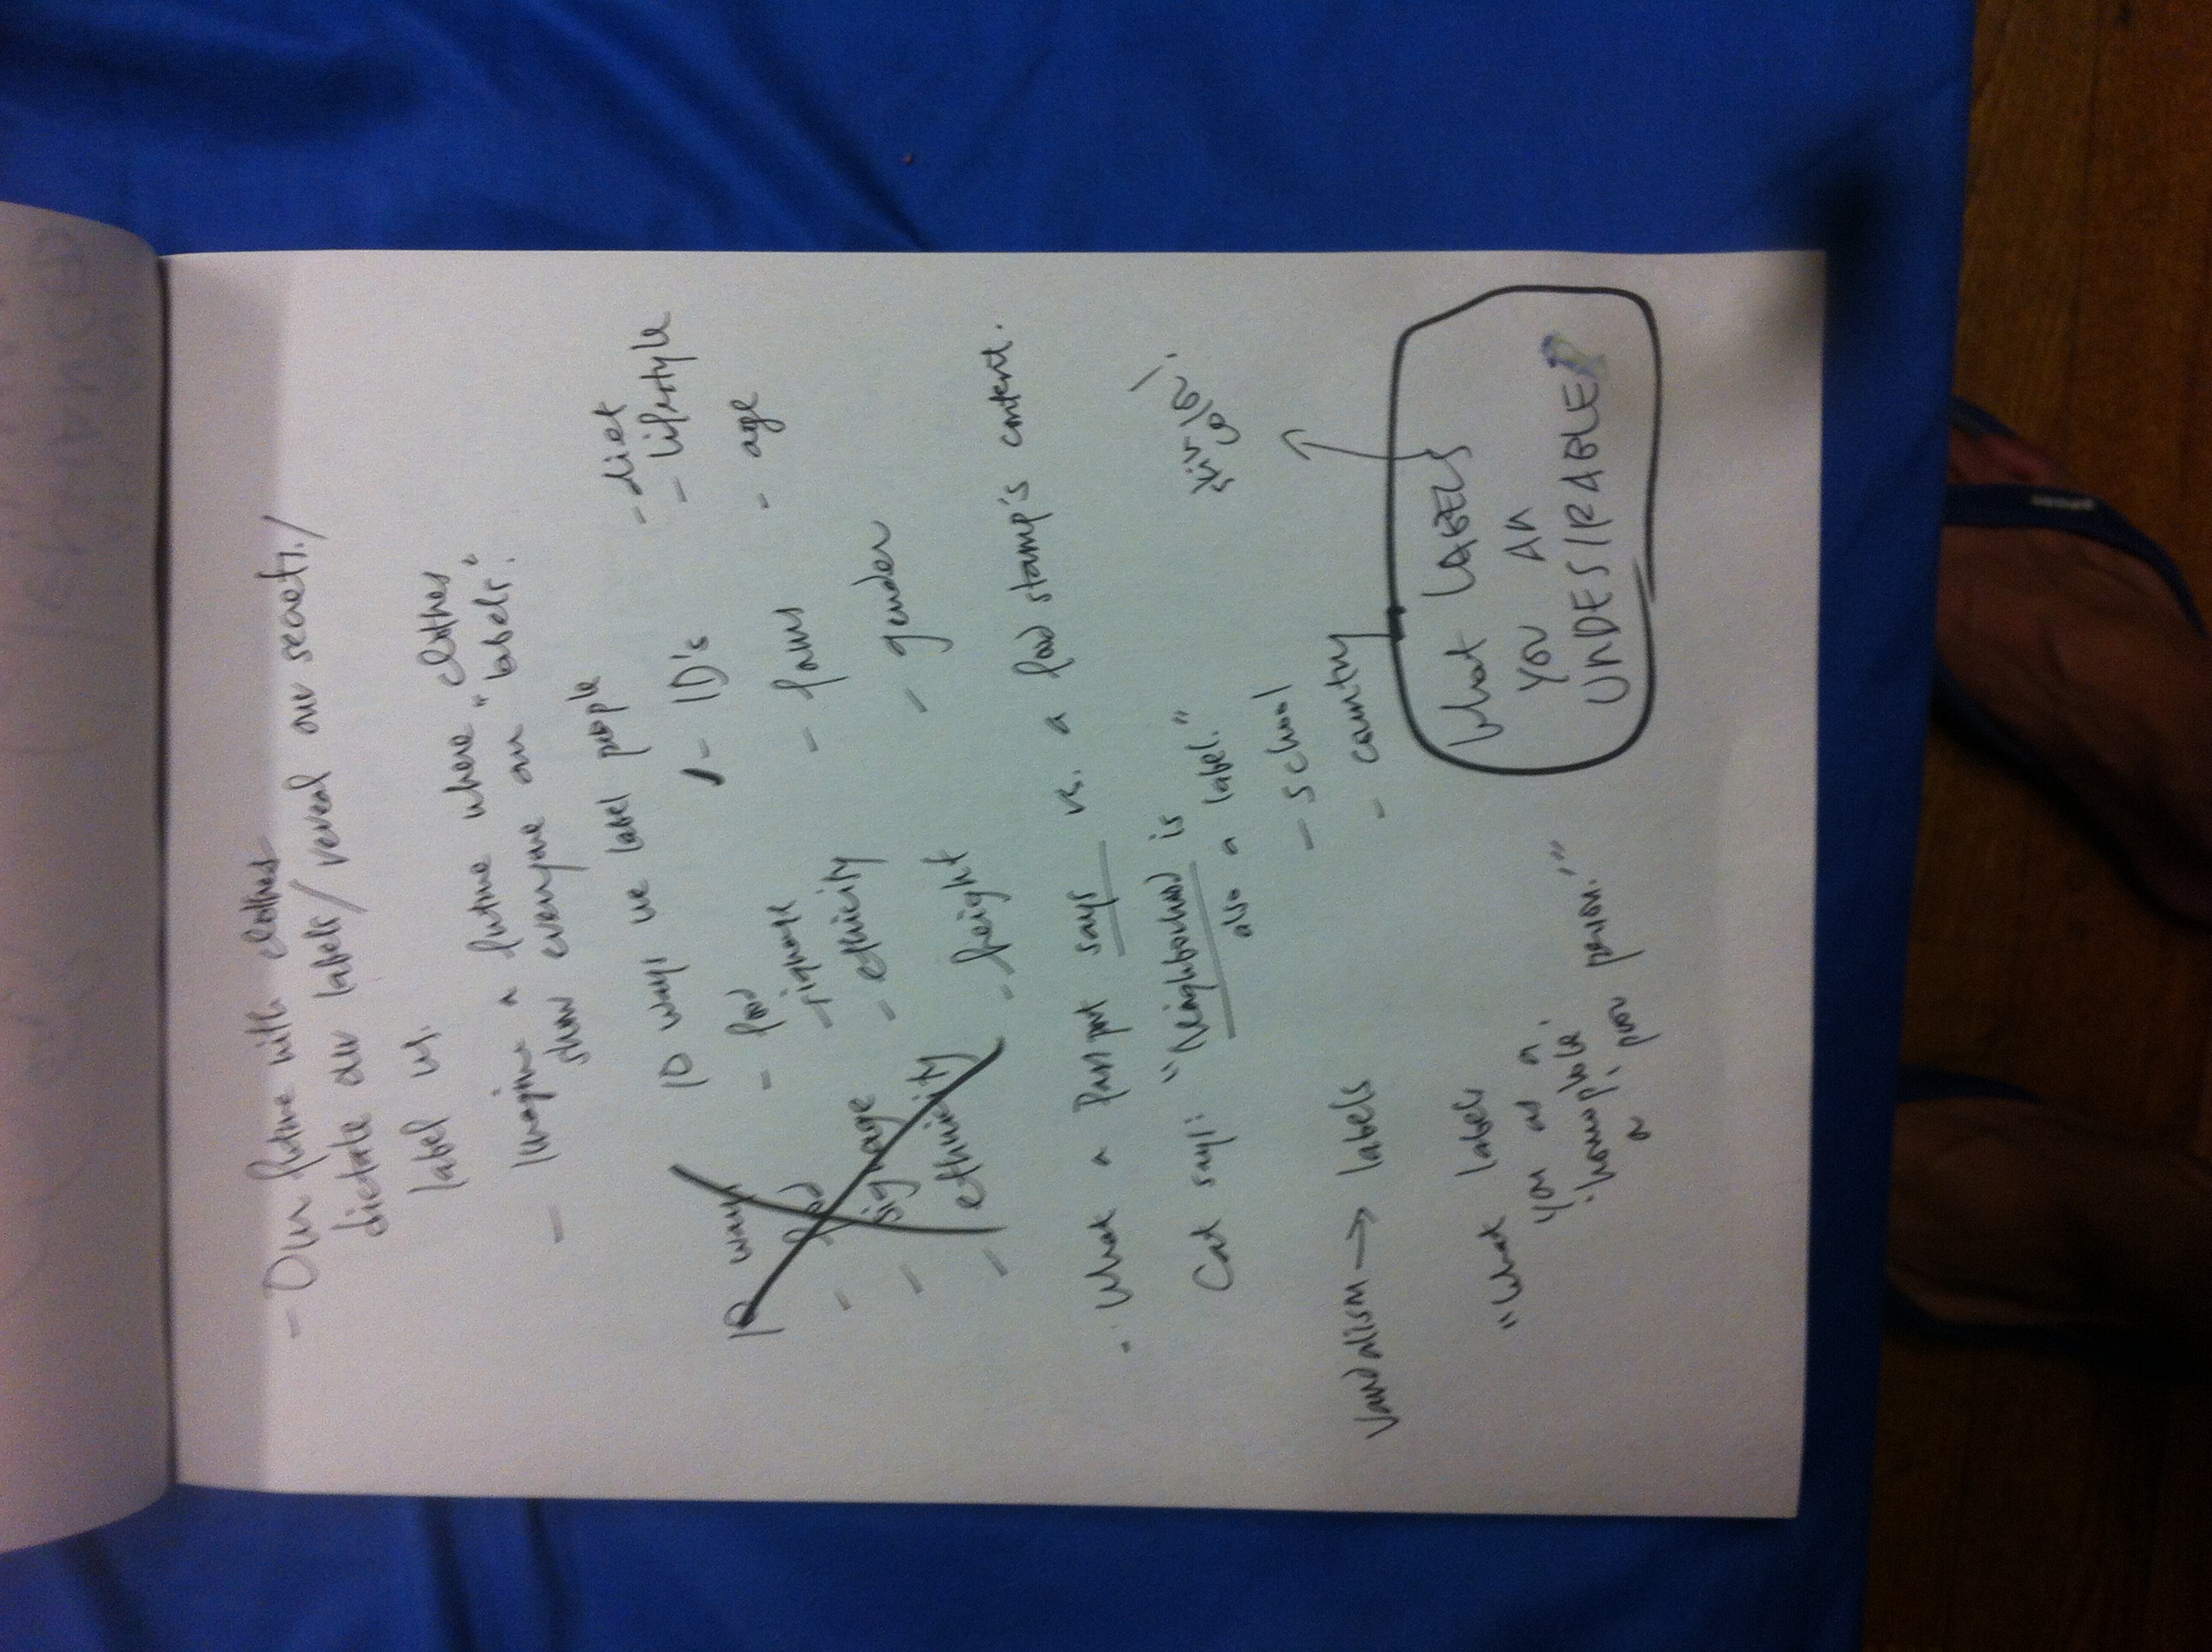 - Our future with clothes
dictate our labels/ reveal our secrets./
label us.
- Imagine a future where clothes
show everyone our "labels."
10 ways we label people
10 ways
- food
- signage
- ethnicity
- food
- signage
- ethicity
- height
- ID's
- forms
- gender
- diet
- lifestyle
- age
- What a Passport says vs. a food stamp's content.
Cat says: "Neighborhood is
also a label."
- school
- country
skin
color!
Vandalism → labels
"What labels
you as a
'homophobe'
a 'poor person.'"
What LABELS
YOU AN
UNDESIRABLE?